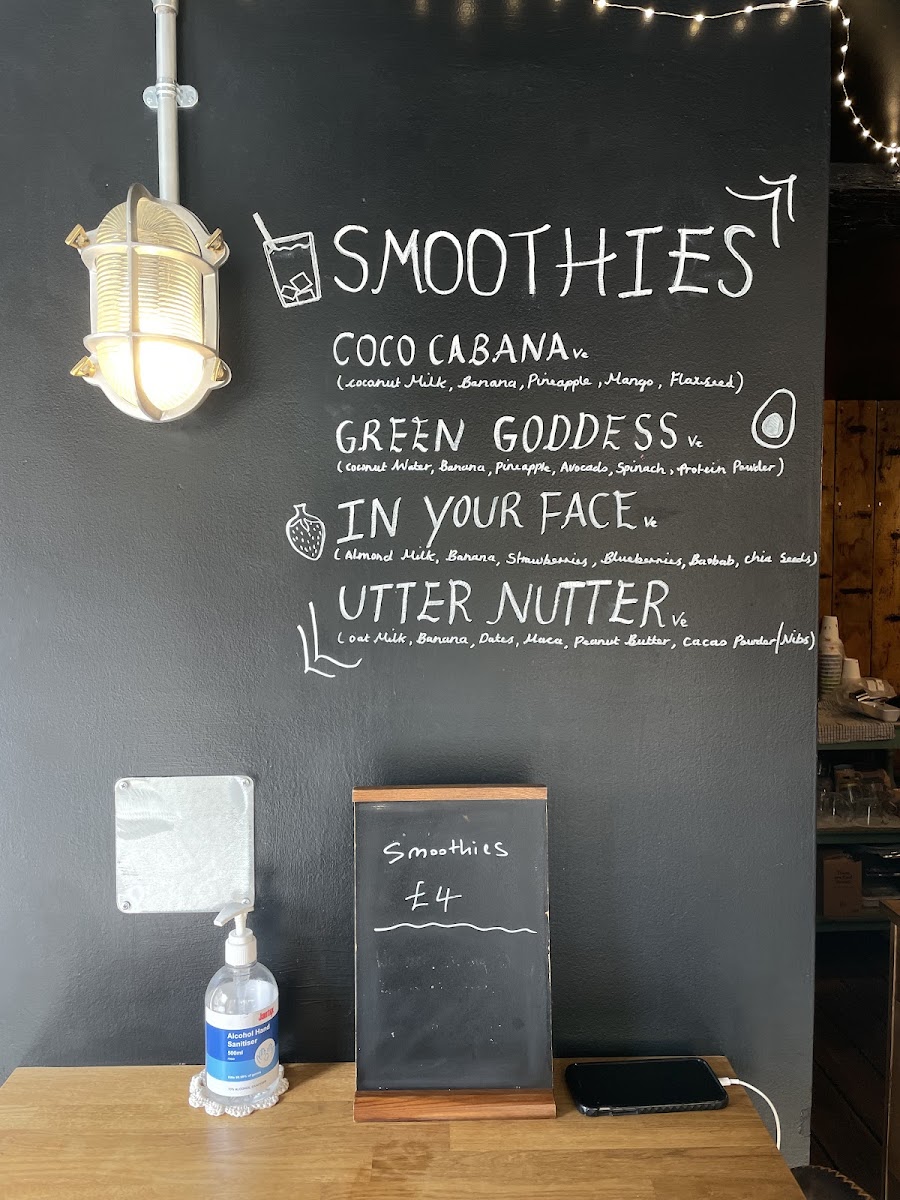 SMOOTHIES
COCO CABANA Ve
(Coconut Milk, Banana, Pineapple, Mango, Flaxseed)
GREEN GODDESS Ve
(Coconut Water, Banana, Pineapple, Avocado, Spinach, Protein Powder)
IN YOUR FACE Ve
(Almond Milk, Banana, Strawberries, Blueberries, Baobab, Chia Seeds)
UTTER NUTTER Ve
(Oat Milk, Banana, Dates, Maca, Peanut Butter, Cacao Powder/Nibs)
Smoothies
£4
Alcohol Hand
Sanitiser
500ml